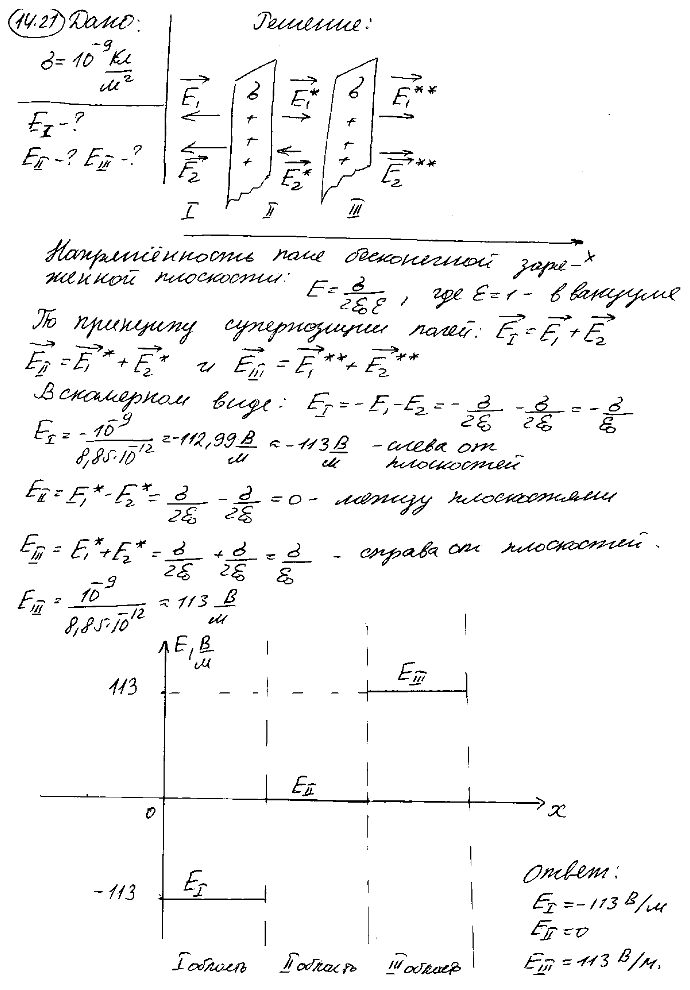 14.21 Дано: Решение:
σ = 10⁻⁹ Кл/м²
E_I - ?
E_II - ? E_III - ?
E₁→ σ E₁→* σ E₁→**
+ +
+ +
+ +
E₂→ E₂→* E₂→**
I II III
x
Напряжённость поле бесконечной заря-
женной плоскости: E = σ/2ε₀ε, где ε = 1 - в вакууме
По принципу суперпозиции полей: E_I→ = E₁→ + E₂→
E_II→ = E₁→* + E₂→* и E_III→ = E₁→** + E₂→**
В скалярном виде: E_I = -E₁ - E₂ = -σ/2ε₀ - σ/2ε₀ = -σ/ε₀
E_I = -10⁻⁹/8,85·10⁻¹² = -112,99 В/м ≈ -113 В/м - слева от
плоскостей
E_II = E₁* - E₂* = σ/2ε₀ - σ/2ε₀ = 0 - между плоскостями
E_III = E₁* + E₂* = σ/2ε₀ + σ/2ε₀ = σ/ε₀ - справа от плоскостей.
E_III = 10⁻⁹/8,85·10⁻¹² ≈ 113 В/м
E, В/м
113 E_III
E_II
0 x
-113 E_I
I область II область III область
Ответ:
E_I = -113 В/м
E_II = 0
E_III = 113 В/м.